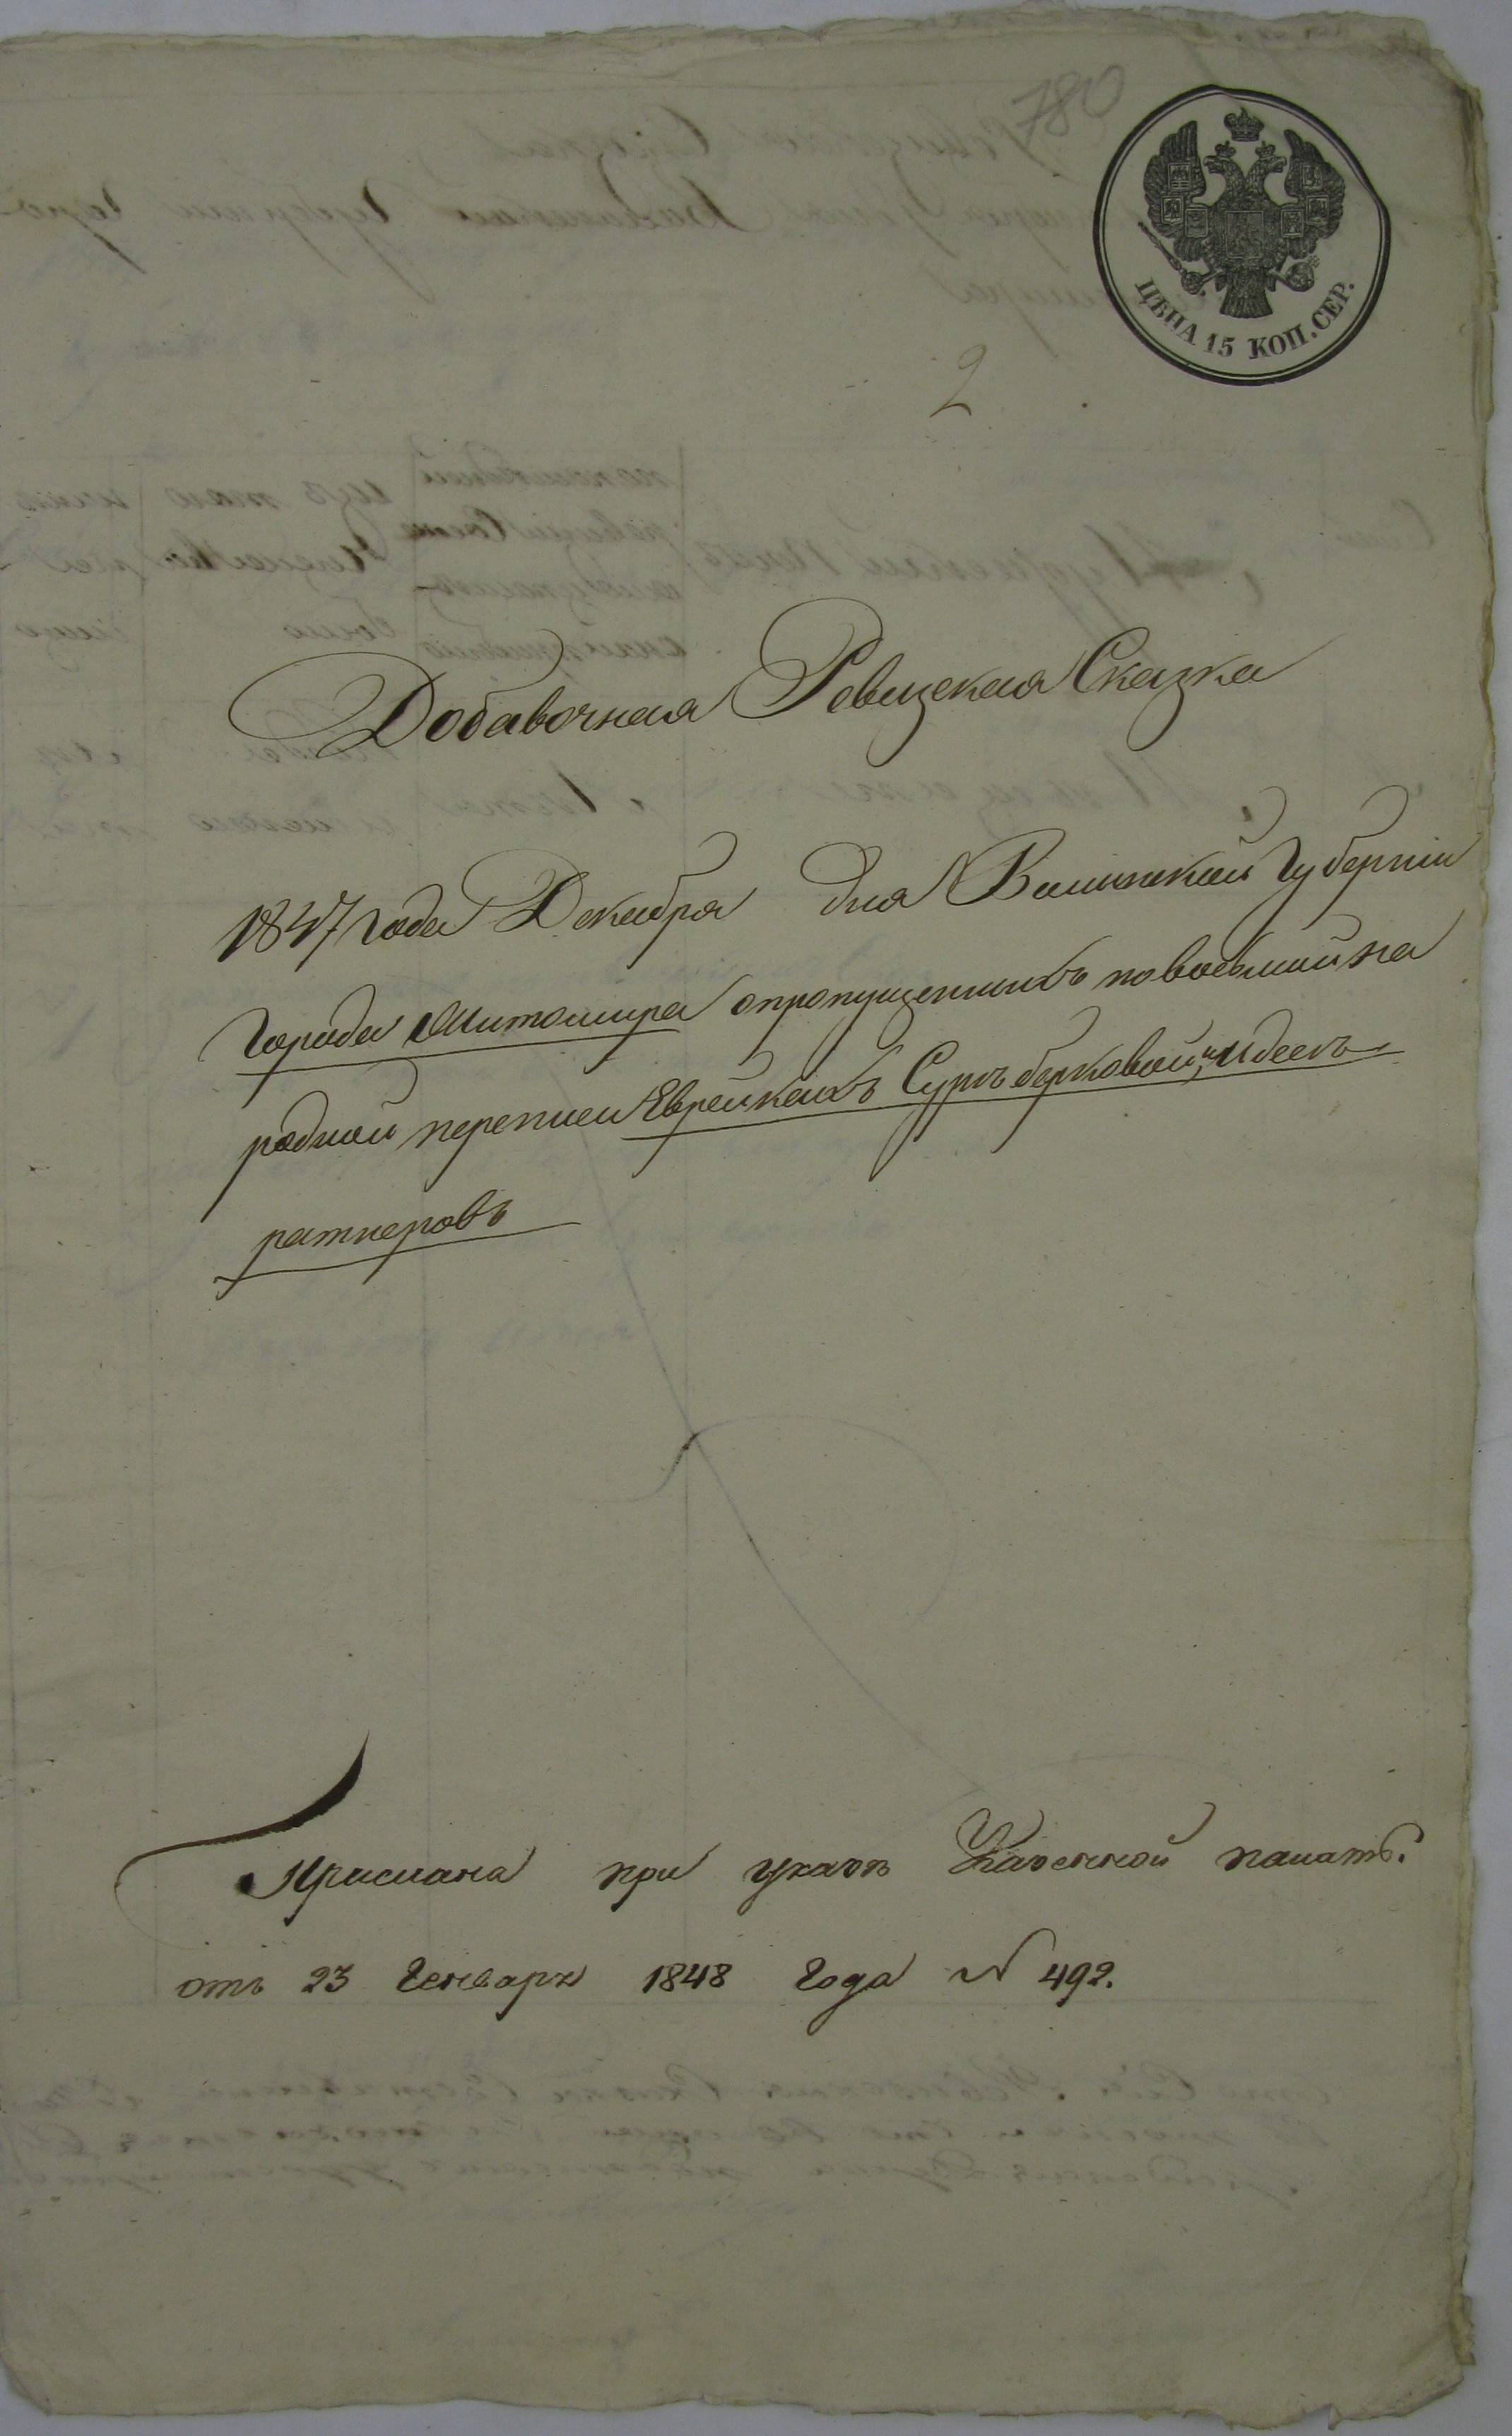 780
ЦѢНА 15 КОП. СЕР.
2
Добавочная Ревизская Сказка
1847 года Декабря дня Волынской Губерніи
Города Житомира о пропущенныхъ по восьмой на
родной переписи Еврейкахъ Суръ берковой, и Идесъ
ратнеровъ
Прислана при указѣ Казенной палаты.
отъ 23 Генваря 1848 года № 492.